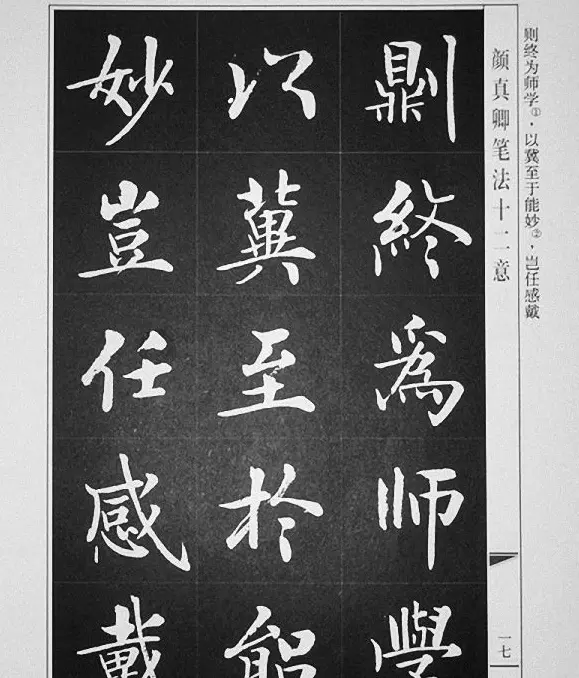 则终为师学①，以冀至于能妙②，岂任感戴
颜真卿笔法十二意
一七
鼎终為师學
以冀至於能
妙豈任感戴